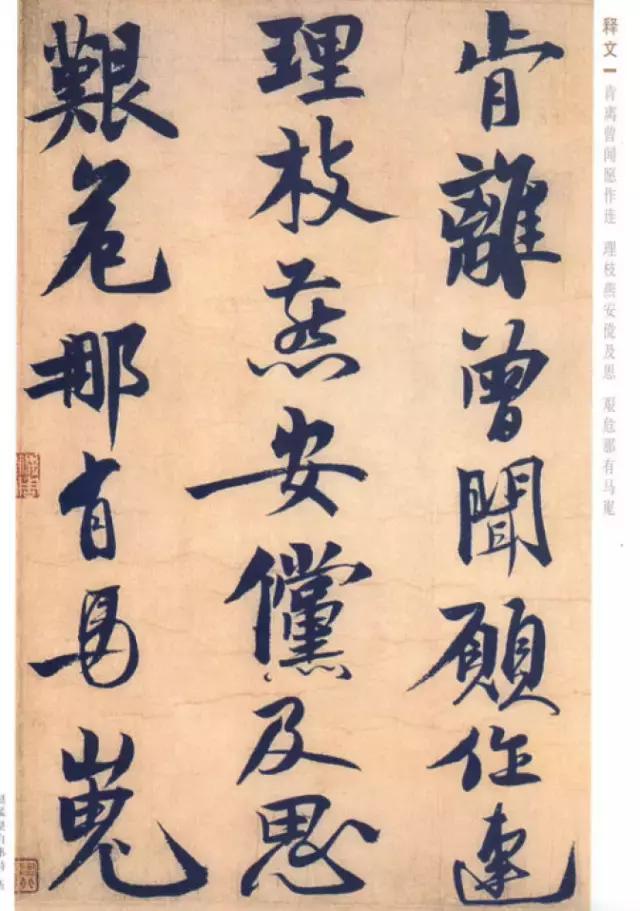 释文一 肯离曾闻愿作连 理枝燕安傥及恩 艰危那有马嵬
肯離曾聞願作連
理枝燕安儻及思
艱危那有馬嵬